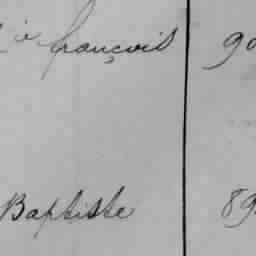 françois 90
Baptiste 89